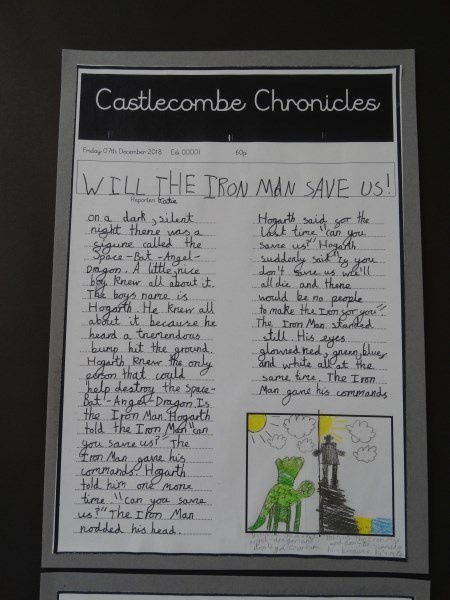 Castlecombe Chronicles
Friday 07th December 2018 Ed: 00001 60p
WILL THE IRON MAN SAVE US!
Reporter: Katie
on a dark, silent
night there was a
figure called the
Space-Bat-Angel-
Dragon. A little, nice
boy knew all about it.
The boys name is
Hogarth. He knew all
about it because he
heard a tremendous
bump hit the ground
Hogarth knew the only
person that could
help destroy the Space-
Bat-Angel-Dragon. Is
the Iron Man. Hogarth
told the Iron Man "can
you save us?" The
Iron Man gave his
commands. Hogarth
told him one more
time. "can you save
us?" The Iron Man
nodded his head.
Hogarth said for the
last time "can you
save us?" Hogarth
suddenly said "If you
don't save us we'll
all die and there
would be no people
to make the Iron for you"
The Iron Man standed
still. His eyes
glowed red, green, blue,
and white all at the
same time. The Iron
Man gave his commands